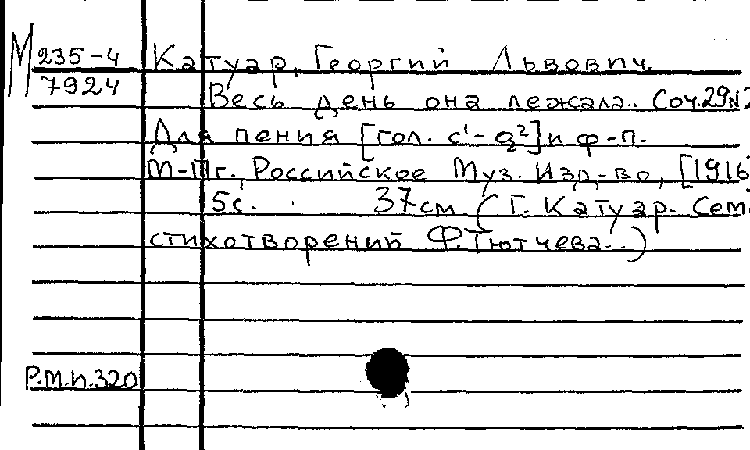 М 235-4
7924
Катуар, Георгий Львович.
Весь день она лежала.. Соч.29№2
Для пения [гол. c¹-g²] и ф-п.
М-Пг., Российское Муз. Изд-во, [1916
5с. 37см (Г. Катуар. Сем
стихотворений Ф.Тютчева..)
Р.М.И.320